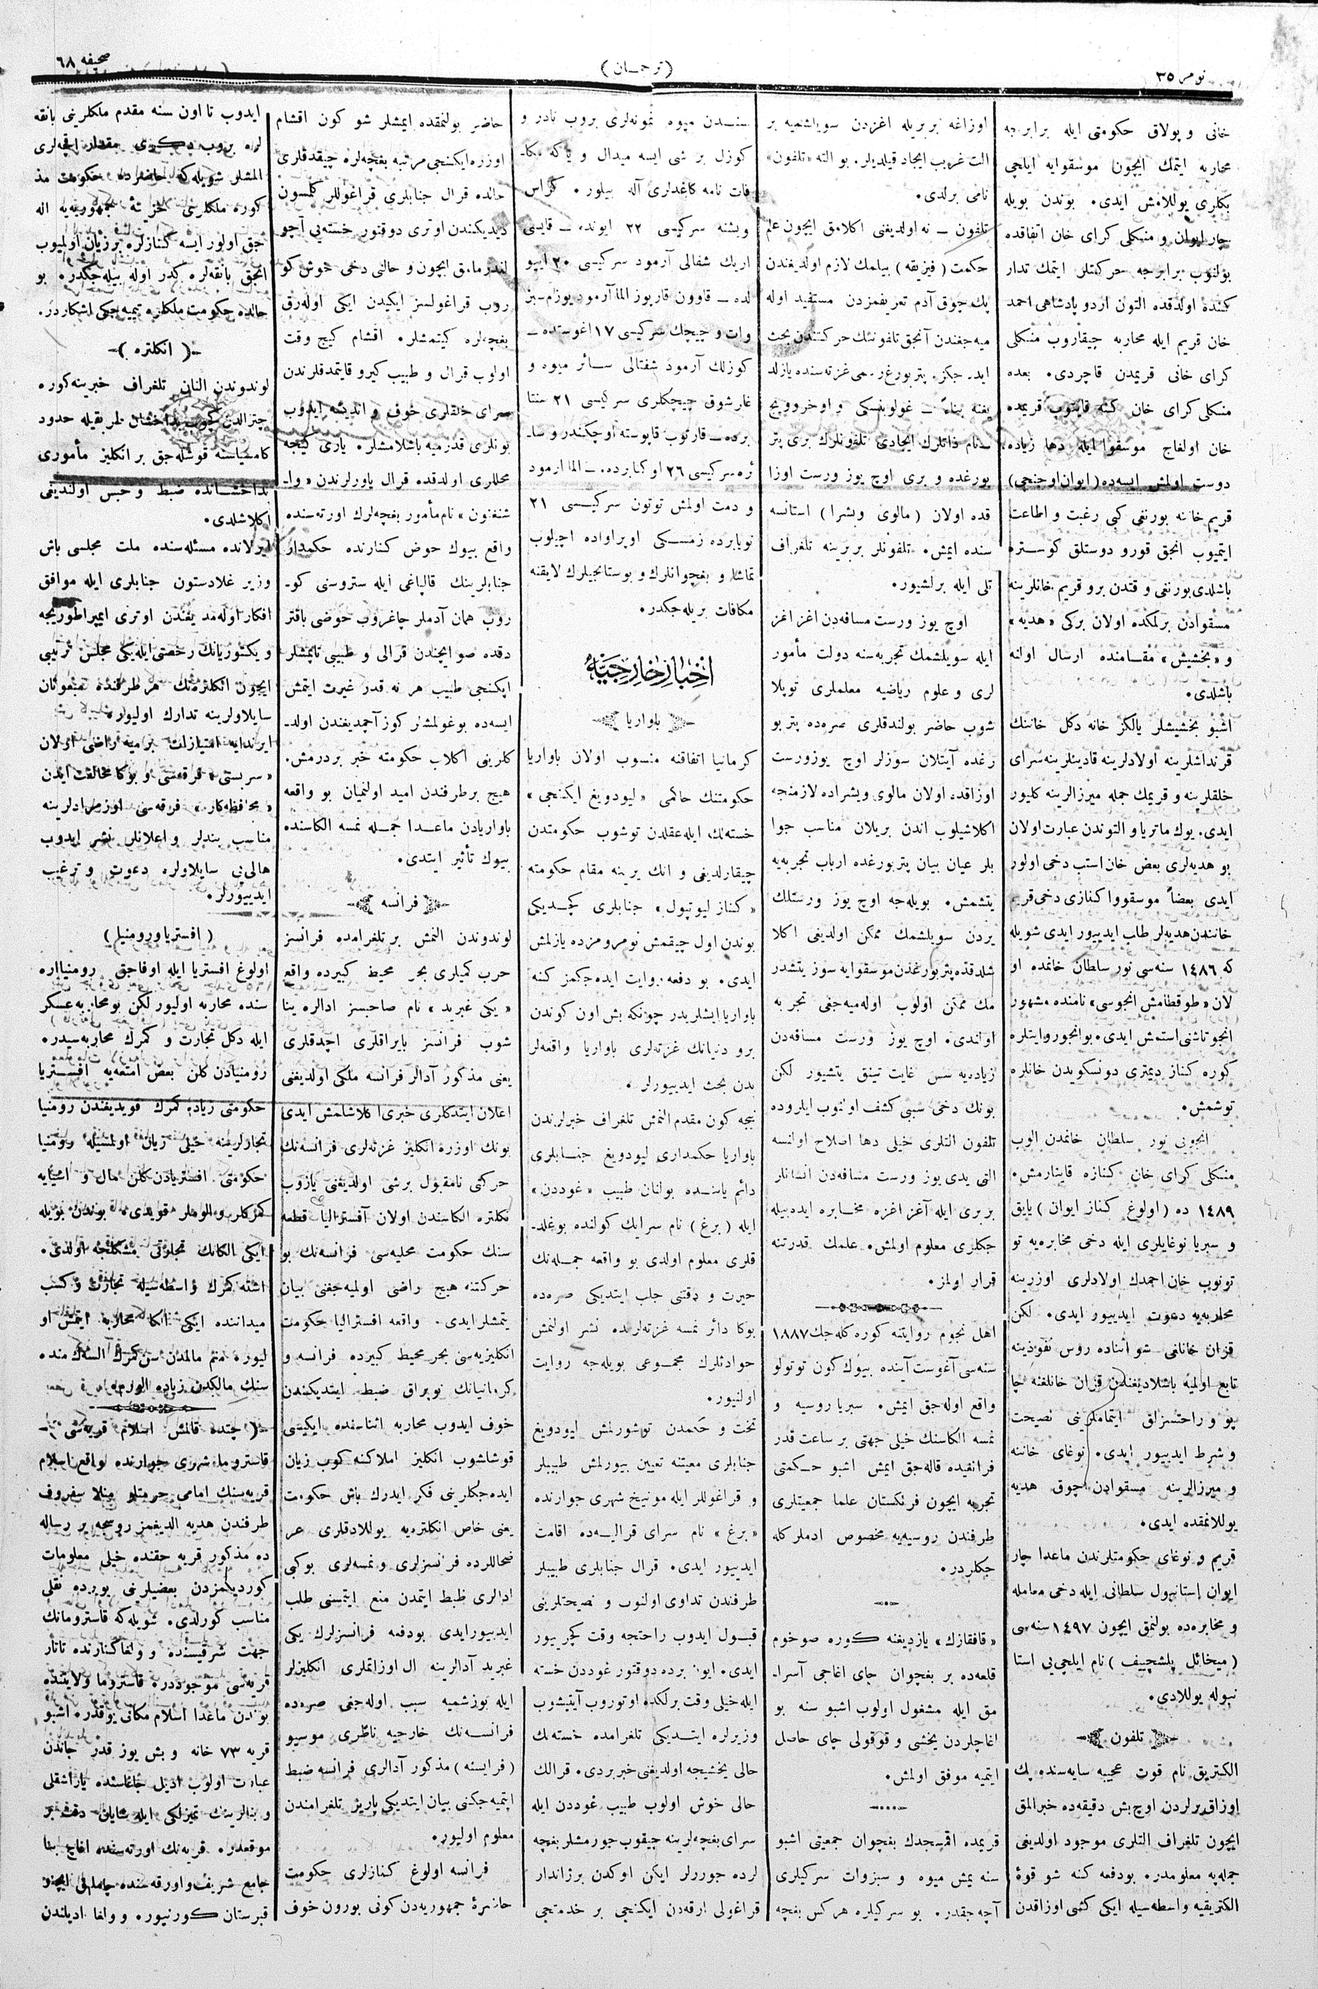 نومر ٣٥
(ترجمان)
صحیفه ٦٨
خانی و پولاق حکومتی ایله برابرجه
محاربه ایتمك ایچون موسقوایه ایلچی
بکلری یوللامش ایدی. بوندن بویله
چار ایوان و منکلی کرای خان اتفاقده
بولنوب برابرجه حرکتلی ایتمك تدار
کنده اولدقده التون اردو پادشاهی احمد
خان قریم ایله محاربه چیقاروب منکلی
کرای خانی قریمدن قاچردی. بعده
منکلی کرای خان کنه قایتوب قریمده
خان اولغاچ موسقوا ایله دها زیاده
دوست اولمش ایسه‌ده (ایوان اوچنجی)
قریم خانه بورنغی کبی رغبت و اطاعت
ایتمیوب انجق قورو دوستلق کوستره
باشلدی بورنغی وقتدن برو قریم خانلرینه
مسقوادن برلمکده اولان برکی «هدیه»
و «بخشیش» مقامنده ارسال اولنه
باشلدی.
اشبو بخشیشلر یالکز خانه دکل خاننك
قرنداشلرینه اولادلرینه قادینلرینه سرای
خلقلرینه و قریمك جمله میرزالرینه کلیور
ایدی. یوك ماتریا و التوندن عبارت اولان
بو هدیه‌لری بعض خان استب دخی اولور
ایدی بعضاً موسقوا کنازی دخی قریم
خانندن هدیه‌لر طلب ایدییور ایدی شویله
که ١٤٨٦ سنه‌سی نور سلطان خانمده او
لان «طوقطامش انجوسی» نامنده مشهور
انجو تاشنی استمش ایدی. بو انجو روایتلره
کوره کناز دیمتری دونسکویدن خانلره
توشمش.
انجوبی نور سلطان خانمدن الوب
منکلی کرای خان کنازه قایتارمش.
١٤٨٩ ده (اولوغ کناز ایوان) بایق
و سبریا نوغایلری ایله دخی مخابره‌یه تو
تونوب خان احمدك اولادلری اوزرینه
محاربه‌یه دعوت ایدییور ایدی. لکن
قزان خانلغی شو اثناده روس نفوذینه
تابع اولمیه باشلادیغندن قزان خانلغنه چا
پو و راحتسزلق ایتماملرینی نصیحت
و شرط ایدییور ایدی. نوغای خاننه
و میرزالرینه مسقوادن چوق هدیه
یوللانمقده ایدی.
قریم و نوغای حکومتلرندن ماعدا چار
ایوان استانبول سلطانی ایله دخی معامله
و مخابره‌ده بولنمق ایچون ١٤٩٧ سنه‌سی
(میخائل پلشچییف) نام ایلچی‌یی استا
نبوله یوللادی.
تلفون
الکتریق نام قوت عجیبه سایه‌سنده پك
اوزاق یرلردن اوچ بش دقیقه‌ده خبر المق
ایچون تلغراف التلری موجود اولدیغی
جمله‌یه معلومدر. بودفعه کنه شو قوۀ
الکتریقیه واسطه‌سیله ایکی کشی اوزاقدن
اوزاغه بربریله اغزدن سویلشمیه بر
الت غریب ایجاد قیلدیلر. بو الته «تلفون»
نامی برلدی.
تلفون — نه اولدیغی اکلامق ایچون علم
حکمت (فیزیقه) بیلمك لازم اولدیغندن
پك چوق آدم تعریفمزدن مستفید اوله
میه‌جغندن آنجق تلفوننك حرکتندن بحث
ایده‌جکز. پتربورغ رسمی غزته‌سنده یازلد
یغنه بناءً — غولوبتسکی و اوخروویچ
نام ذاتلرك ایجادی تلفونلرك بری پتر
بورغده و بری اوچ یوز ورست اوزا
قده اولان (مالوی ویشرا) استانسه
سنده ایمش. تلفونلر بربرینه تلغراف
تلی ایله برلشیور.
اوچ یوز ورست مسافه‌دن اغز اغز
ایله سویلشمك تجربه‌سنه دولت مأمور
لری و علوم ریاضیه معلملری توپلا
شوب حاضر بولندقلری صره‌ده پتربو
رغده آیتلان سوزلر اوچ یوز ورست
اوزاقده اولان مالوی ویشراده لازمنجه
اکلاشیلوب اندن بریلان مناسب جوا
بلر عیان بیان پتربورغده ارباب تجربه‌یه
یتشمش. بویله‌جه اوچ یوز ورستلك
یردن سویلشمك ممکن اولدیغی اکلا
شلدقده پتربورغدن موسقوایه سوز یتشدر
مك ممکن اولوب اوله‌میه‌جغی تجربه
اولندی. اوچ یوز ورست مسافه‌دن
زیاده‌یه سس غایت تینق یتشیور لکن
بونك دخی سببی کشف اولنوب ایلروده
تلفون التلری خیلی دها اصلاح اولنسه
التی یدی یوز ورست مسافه‌دن انسانلر
بربری ایله آغز اغزه مخابره ایده‌بیله
جکلری معلوم اولمش. علمك قدرتنه
قرار اولمز.
اهل نجوم روایتنه کوره کله‌جك ١٨٨٧
سنه‌سی آغوست آینده بیوك کون توتولو
واقع اوله‌جق ایمش. سبریا روسیه و
نمسه الکاسنك خیلی جهتی بر ساعت قدر
قرانغیده قاله‌جق ایمش اشبو حکمتی
تجربه ایچون فرنکستان علما جمعیتلری
طرفندن روسیه‌یه مخصوص ادملر کله
جکلردر.
«قافقاز» یازدیغنه کوره صوخوم
قلعه‌ده بر بغچوان چای اغاجی آسرا
مق ایله مشغول اولوب اشبو سنه بو
اغاجلردن یخشی و قوقولی چای حاصل
ایتمیه موفق اولمش.
قریمده اقمسجدك بغچوان جمعیتی اشبو
سنه یمش میوه و سبزوات سرکیلری
آچه‌جقدر. بو سرکیلره هرکس بغچه
سندن میوه نمونه‌لری بروب نادر و
کوزل بر شی ایسه میدال و یاکه مکا
فات نامه کاغدلری آله بیلور. کراس
ویشنه سرکیسی ٢٢ ایونده — قایسی
اریك شفتالی آرمود سرکیسی ٢٠ ایو
لده — قاوون قارپوز الما آرمود یوزام سبز
وات و چیچك سرکیسی ١٧ اغوستده —
کوزلك آرمود شفتالی سائر میوه و
غارشوق چیچکلری سرکیسی ٢١ سنتا
برده — قارتوپ قاپوسته اوچکندر و سا
ئره سرکیسی ٢٦ اوکتابرده. — الما ارمود
و دمت اولمش توتون سرکیسی ٢١
نویابرده زمسکی اوپراواده اچیلوب
تماشا و بغچوانلرك و بوستانجیلرك لایقنه
مکافات بریله‌جکدر.
اخبار خارجیه
باواریا
کرمانیا اتفاقنه منسوب اولان باواریا
حکومتنك حاکمی «لیودویغ ایکنجی»
خسته‌لك ایله عقلدن توشوب حکومتدن
چیقارلدیغی و انك یرینه مقام حکومته
«کناز لیوتپولد» جنابلری کچدیکی
بوندن اول چیقمش نومرومزده یازلمش
ایدی. بو دفعه روایت ایده‌جکمز کنه
باواریا ایشلریدر چونکه بش اون کوندن
برو دنیانك غزته‌لری باواریا واقعه‌لر
یدن بحث ایدییورلر.
نیجه کون مقدم النمش تلغراف خبرلرندن
باواریا حکمداری لیودویغ جنابلری
دائم یاننده بولنان طبیب «غوددن»
ایله (برغ) نام سرایك کولنده بوغلد
قلری معلوم اولدی بو واقعه جمله‌نك
حیرت و دقتنی جلب ایتدیکی صره‌ده
بوکا دائر نمسه غزته‌لرنده نشر اولنمش
حوادثلرك مجموعی بویله‌جه روایت
اولنیور.
تخت و حکمدن توشورلمش لیودویغ
جنابلری معیتنه تعیین بیورلمش طبیبلر
و قراغوللر ایله مونیخ شهری جوارنده
«برغ» نام سرای قرالیده اقامت
ایدییور ایدی. قرال جنابلری طبیبلر
طرفندن تداوی اولنوب و نصیحتلرینی
قبول ایدوب راحتجه وقت کچرییور
ایدی. ایون برده دوقتور غوددن خسته
ایله خیلی وقت برلکده اوتوروب آیتیشوب
وزیرلره ایتدیکی تلغرامده خسته‌نك
حالی یخشیجه اولدیغی خبر بردی. قرالك
حالی خوش اولوب طبیب غوددن ایله
سرای بغچه‌لرینه چیقوب جورمشلر بغچه
لرده جوررلر ایکن اوکدن برژاندار
قراغولی ارقه‌دن ایکنجی بر خدمتجی
حاضر بولنمقده ایمشلر شو کون اقشام
اوزره ایکنجی مرتبه بغچه‌لره چیقدقلری
حالده قرال جنابلری قراغوللر کلسون
دیدیکندن اوتری دوقتور خسته‌یی آچو
لندرمامق ایچون و حالنی دخی خوش کو
روب قراغولسز ایکیدن ایکی اوله‌رق
بغچه‌لره کیتمشلر. اقشام کیچ وقت
اولوب قرال و طبیب کیرو قایتمدقلرندن
سرای خلقلری خوف و اندیشه ایدوب
بونلری قدرمیه باشلامشلر. یاری کیجه
محللری اولدقده قرال یاورلرندن «وا
شنغتون» نام مأمور بغچه‌لرك اورته‌سنده
واقع بیوك حوض کنارنده حکمدار
جنابلرینك قالپاغی ایله ستروسنی کو
روب همان آدملر چاغروب حوضی باقتر
دقده صو ایچندن قرالی و طبیبی تاپمشلر
ایکنجی طبیب هر نه قدر غیرت ایتمش
ایسه‌ده بوغولمشلر کوز آچمدیغندن اولد
کلرینی اکلاب حکومته خبر بردرمش.
هیچ برطرفندن امید اولنمیان بو واقعه
باواریادن ماعدا جمله نمسه الکاسنده
بیوك تأثیر ایتدی.
فرانسه
لوندوندن النمش بر تلغرامده فرانسز
حرب کمیلری بحر محیط کبیرده واقع
«یکی غبرید» نام صاحبسز ادالره ینا
شوب فرانسز بایراقلری اچدقلری
یعنی مذکور آدالر فرانسه ملکی اولدیغی
اعلان ایتدکلری خبری اکلاشلمش ایدی
بونك اوزره انکلیز غزته‌لری فرانسه‌نك
حرکتی نامقبول برشی اولدیغی یازوب
نکلتره الکاسندن اولان آفسترالیا قطعه
سنك حکومت محلیه‌سی فرانسه‌نك بو
حرکتنه هیچ راضی اولمیه‌جغنی بیان
یتمشلر ایدی. واقعه افسترالیا حکومت
انکلیزیه‌سی بحر محیط کبیرده فرانسه و
کرمانیانك توپراق ضبط ایتدیکندن
خوف ایدوب محاربه اثناسنده ایکیسی
قوشاشوب انکلیز املاکنه کوب زیان
ایده‌جکلرینی فکر ایدرك باش حکومت
یعنی خاص انکلتره‌یه یوللادقلری عر
ضحاللرده فرانسزلری و نمسه‌لری بوکبی
ادالری ظبط ایتمدن منع ایتمسنی طلب
ایدییور ایدی بودفعه فرانسزلرك یکی
غبرید آدالرینه ال اوزاتملری انکلیزلر
ایله بوزشمیه سبب اوله‌جغی صره‌ده
فرانسه‌نك خارجیه ناظری موسیو
(فراینسه) مذکور آدالری فرانسه ضبط
ایتمیه‌جکنی بیان ایتدیکی پاریژ تلغرامندن
معلوم اولیور.
فرانسه اولوغ کنازلری حکومت
حاضرۀ جمهوریه‌دن کونی بورون خوف
ایدوب تا اون سنه مقدم ملکلرینی بانقه
لره بروب دکری مقداری اقچه‌لری
المشلر شویله‌که حاضرده حکومت مذ
کوره ملکلری خزنۀ جمهوریه‌یه اله
جق اولور ایسه کنازلره برزیان اولمیوب
انجق بانقه‌لره کدر اوله بیله‌جکدر. بو
حالده حکومت ملکلره تیمیه‌جکی اشکاردر.
(انکلتره)
لوندوندن النان تلغراف خبرینه کوره
چترالدن کچوب بداخشان طریقیله حدود
کامیسیاسنه قوشله‌جق بر انکلیز مأموری
بداخشانده ضبط و حبس اولندیغی
اکلاشلدی.
ایرلانده مسئله‌سنده ملت مجلسی باش
وزیر غلادستون جنابلری ایله موافق
افکار اوله‌مدیغندن اوتری ایمپراطوریچه
ویکتوریانك رخصتی ایله یکی مجلس ترتیبی
ایچون انکلتره‌نك هر طرفنده مبعوثان
سایلاولرینه تدارك اولنیور.
ایرلندایه امتیازات برمیه راضی اولان
«سربستی» فرقه‌سی و بوکا مخالفت ایدن
«محافظه‌کار» فرقه‌سی اوز مرادلرینه
مناسب بندلر و اعلانلر نشر ایدوب
هالی‌یی سایلاولره دعوت و ترغیب
ایدییورلر.
(افستریا و رومنیا)
اولوغ افستریا ایله اوفاجق رومنیا ارا
سنده محاربه اولیور لکن بو محاربه عسکر
ایله دکل تجارت و کمرك محاربه‌سیدر.
رومنیادن کلن بعض امتعه‌یه افستریا
حکومتی زیاده کمرك قویدیغندن رومنیا
تجارلرینه خیلی زیان اولمسیله رومنیا
حکومتی افستریادن کلن مال و اشیایه
کمرکلر و الوملر قویدی. بوندن بویله
ایکی الکانك تجارتی مشکلجه اولدی.
اشته کمرك واسطه‌سیله تجارت و کسب
میداننده ایکی الکا محاربه ایتمش او
لیور. منم مالمدن سن کمرك السه‌ك منده
سنك مالکدن زیاده الورم.
(چتده قالمش اسلام قریه‌سی)
قاستروما شهری جوارنده واقع اسلام
قریه‌سنك امامی حرمتلو منلا سفروف
طرفندن هدیه الدیغمز روسجه بر رساله
ده مذکور قریه حقنده خیلی معلومات
کوردیکمزدن بعضیلرینی بویرده نقلی
مناسب کورلدی. شویله‌که قاسترومانك
جهت شرقیسنده و ولغا کنارنده تاتار
قریه‌سی موجوددر. قاستروما ولایتنده
بوندن ماعدا اسلام مکانی یوقدر. اشبو
قریه ٧٣ خانه و بش یوز قدر جاندن
عبارت اولوب ادیل جاغاسنده یاراشقلی
و بنالرینك تمیزلکی ایله شایان دقت بر
موقعدر. قریه‌نك اورته‌سنده اغاچ بنا
جامع شریف و اورقه‌سنده چاملی ایچنو
قبرستان کورنیور. و ولغا ادیلندن